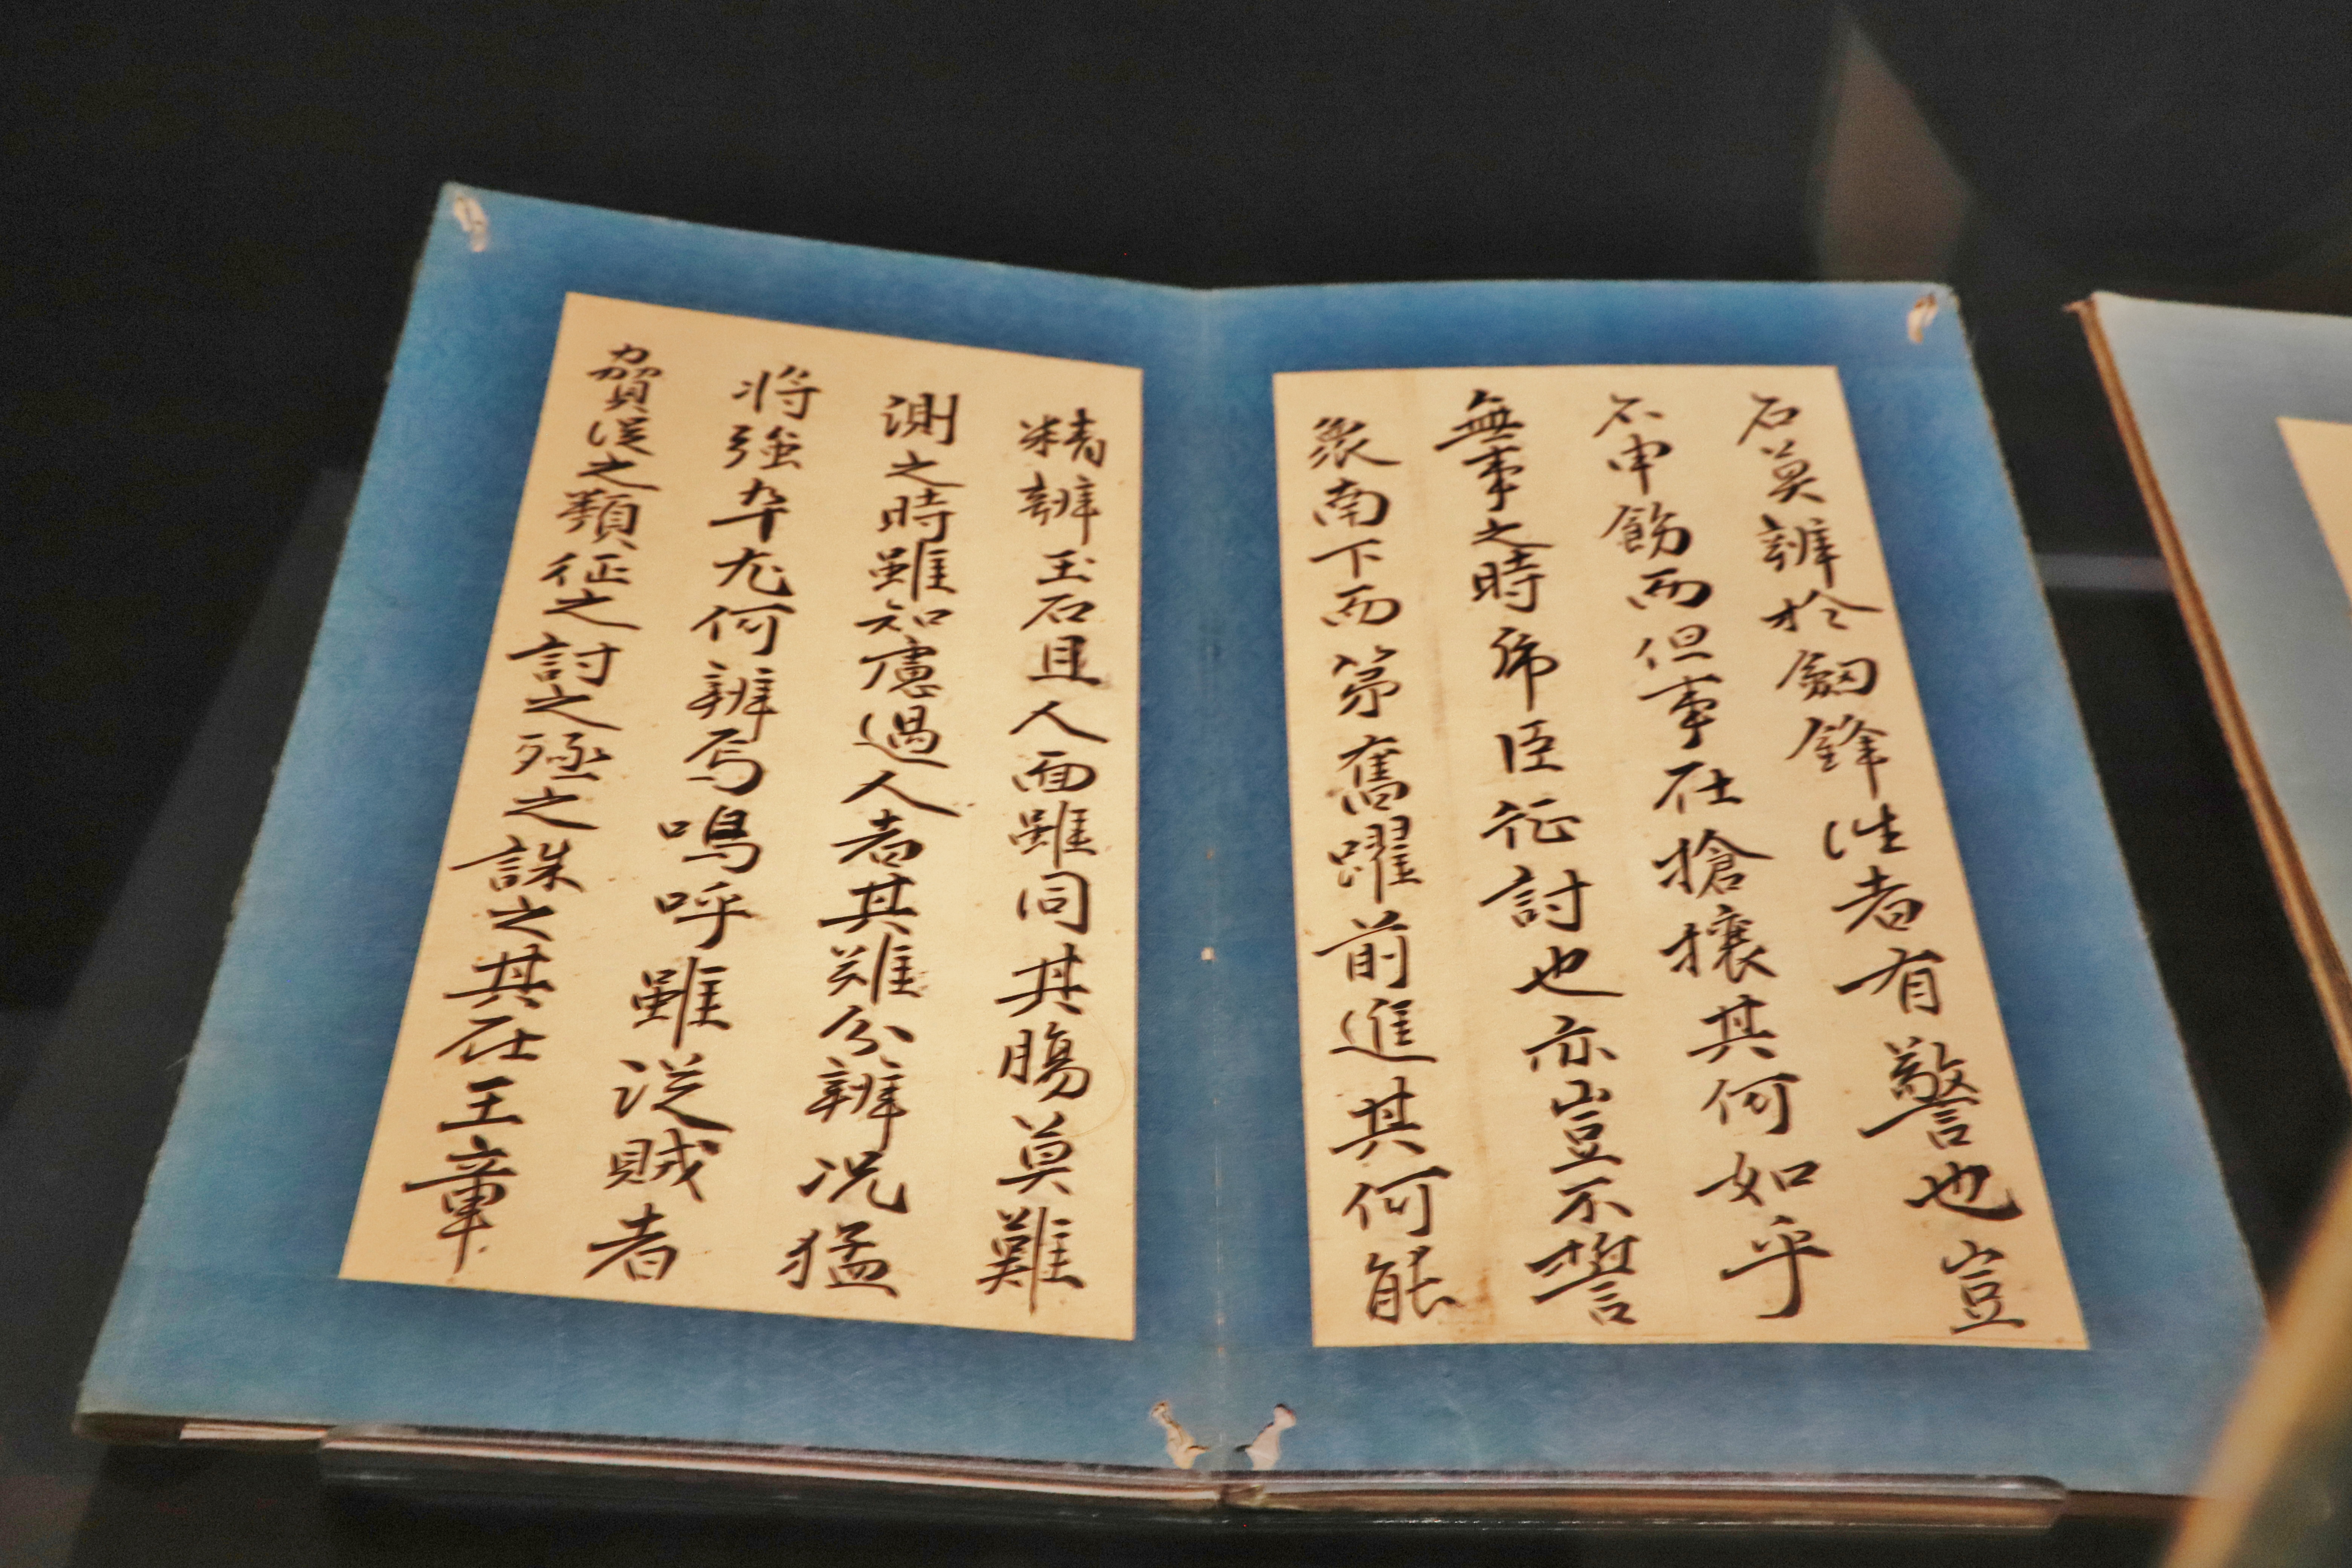 石莫辨於劔鋒此者有警也豈
不申飭而但事在搶攘其何如乎
無事之時師臣征討也亦豈不誓
衆南下而第奮躍前進其何能
精辨玉石且人面雖同其腸莫難
測之時雖知慮過人者其難分辨況
將強卒尤何辨焉嗚呼雖從賊者
賀從之類征之討之殛之誅之其在王章